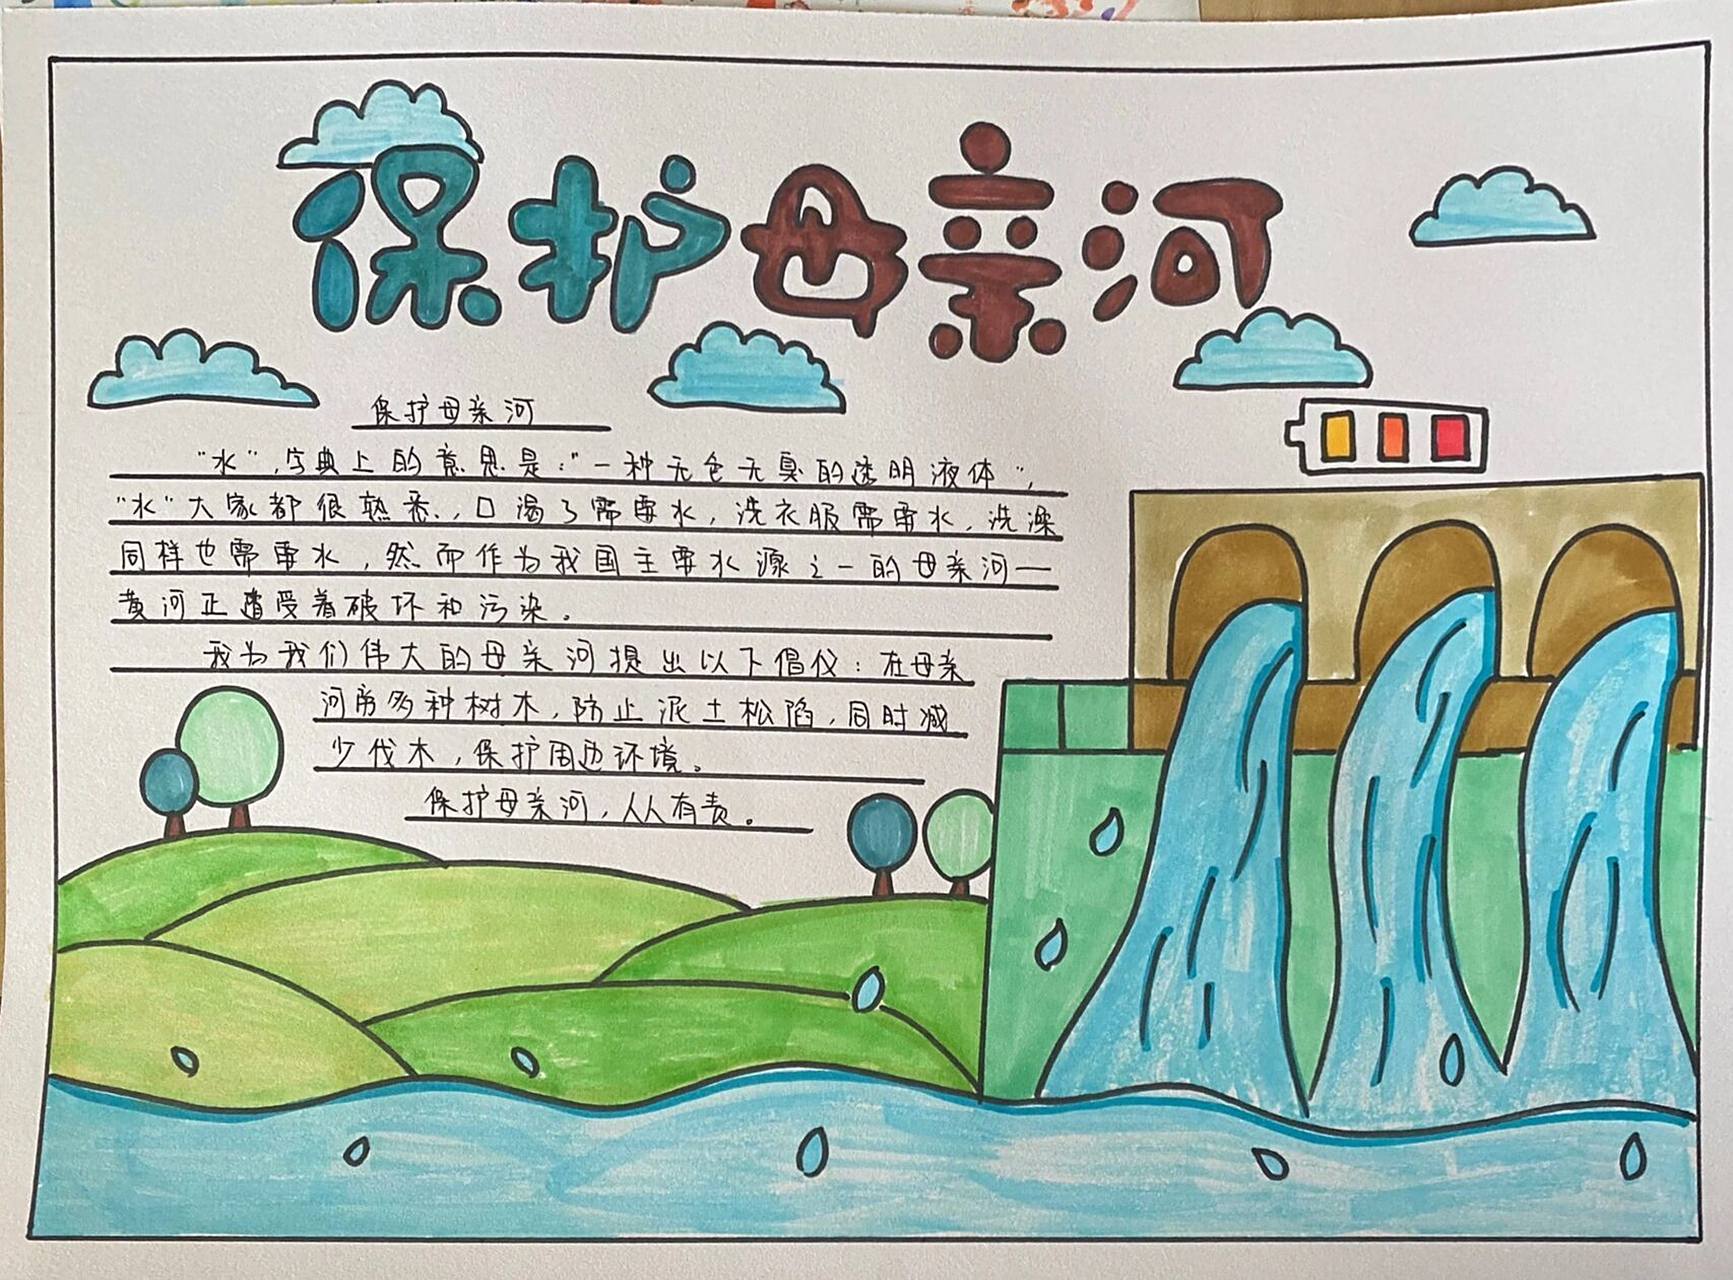 保护母亲河
保护母亲河
"水"，字典上的意思是："一种无色无臭的透明液体"，
"水"大家都很熟悉，口渴了需要水，洗衣服需要水，洗澡
同样也需要水，然而作为我国主要水源之一的母亲河—
黄河正遭受着破坏和污染。
我为我们伟大的母亲河提出以下倡仪：在母亲
河旁多种树木，防止泥土松陷，同时减
少伐木，保护周边环境。
保护母亲河，人人有责。